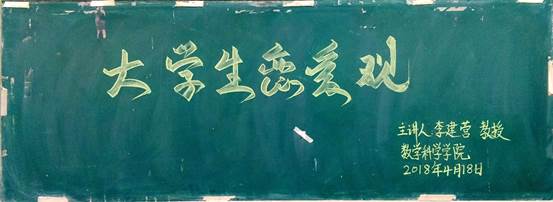 大学生恋爱观
主讲人:李建营 教授
数学科学学院
2018年4月18日